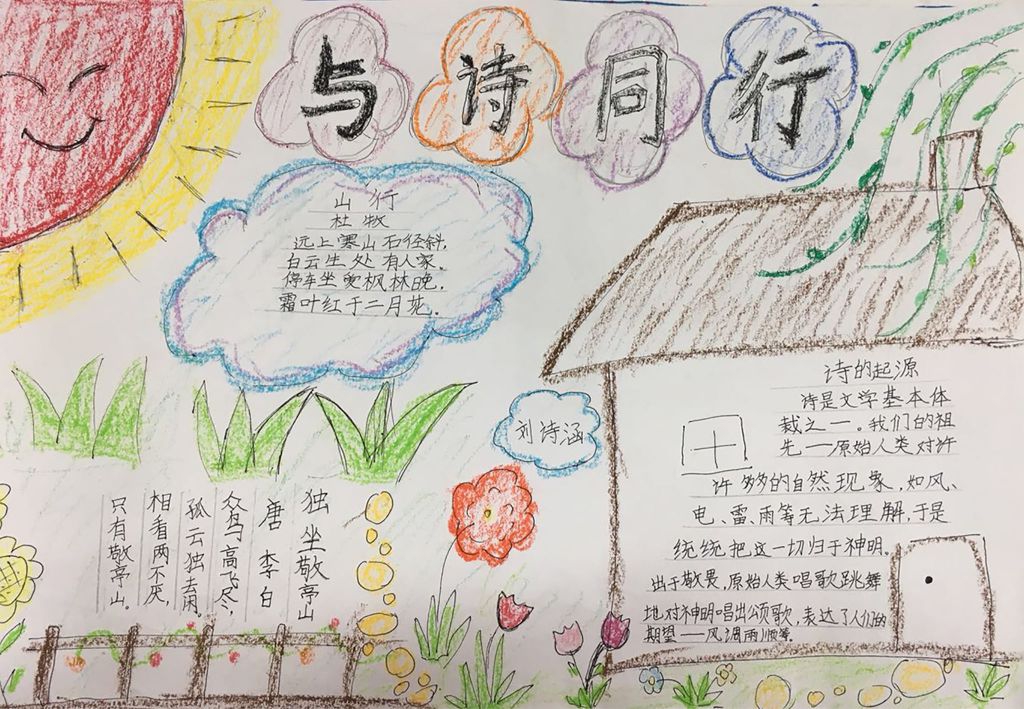 与诗同行
山行
杜牧
远上寒山石径斜,
白云生处有人家。
停车坐爱枫林晚,
霜叶红于二月花。
刘诗涵
诗的起源
诗是文学基本体
裁之一。我们的祖
先——原始人类对许
许多多的自然现象,如风、
电、雷、雨等无法理解,于是
统统把这一切归于神明。
出于敬畏,原始人类唱歌跳舞
地对神明唱出颂歌,表达了人们的
期望——风调雨顺等
独坐敬亭山
唐 李白
众鸟高飞尽,
孤云独去闲。
相看两不厌,
只有敬亭山。